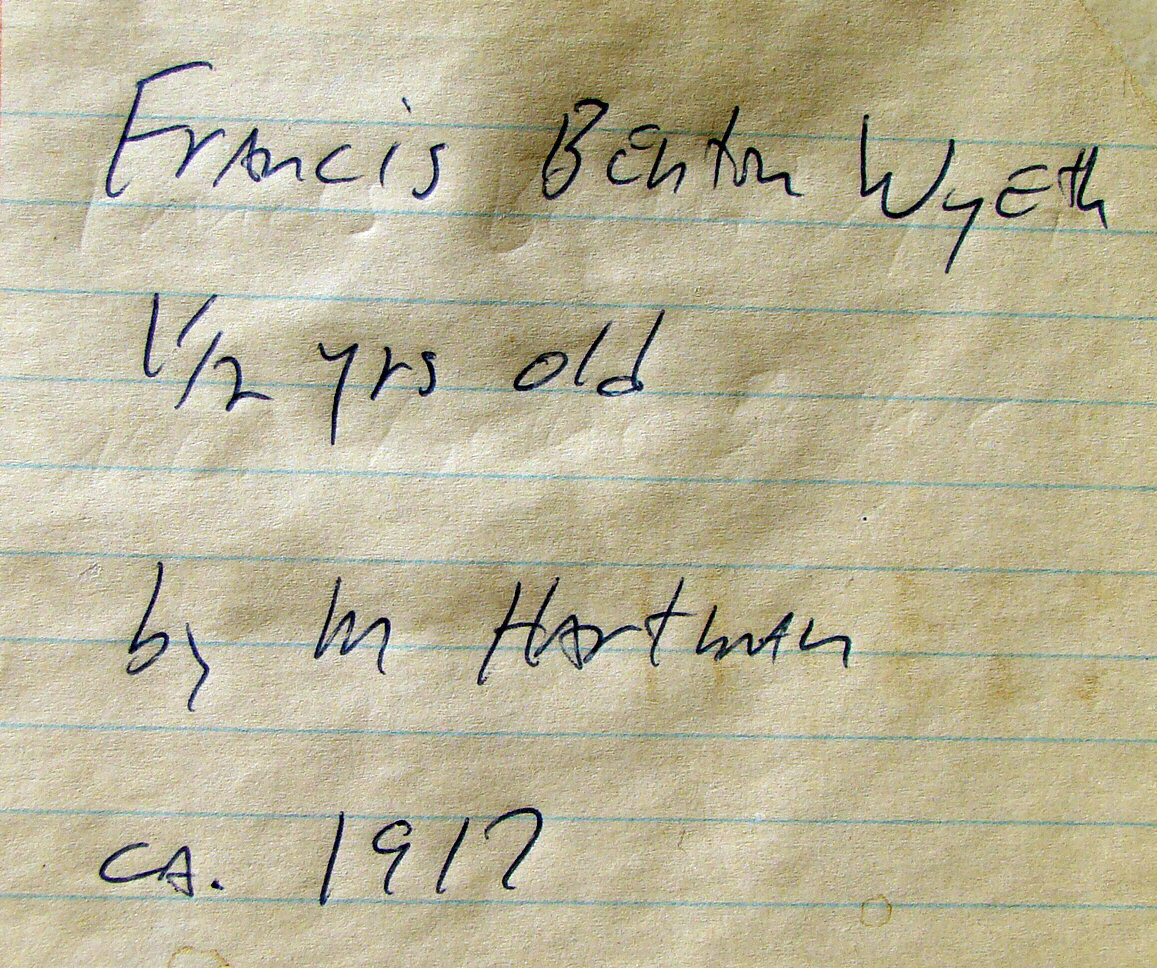 Francis Benton Wyeth
1 1/2 yrs old
by M Hartman
ca. 1917